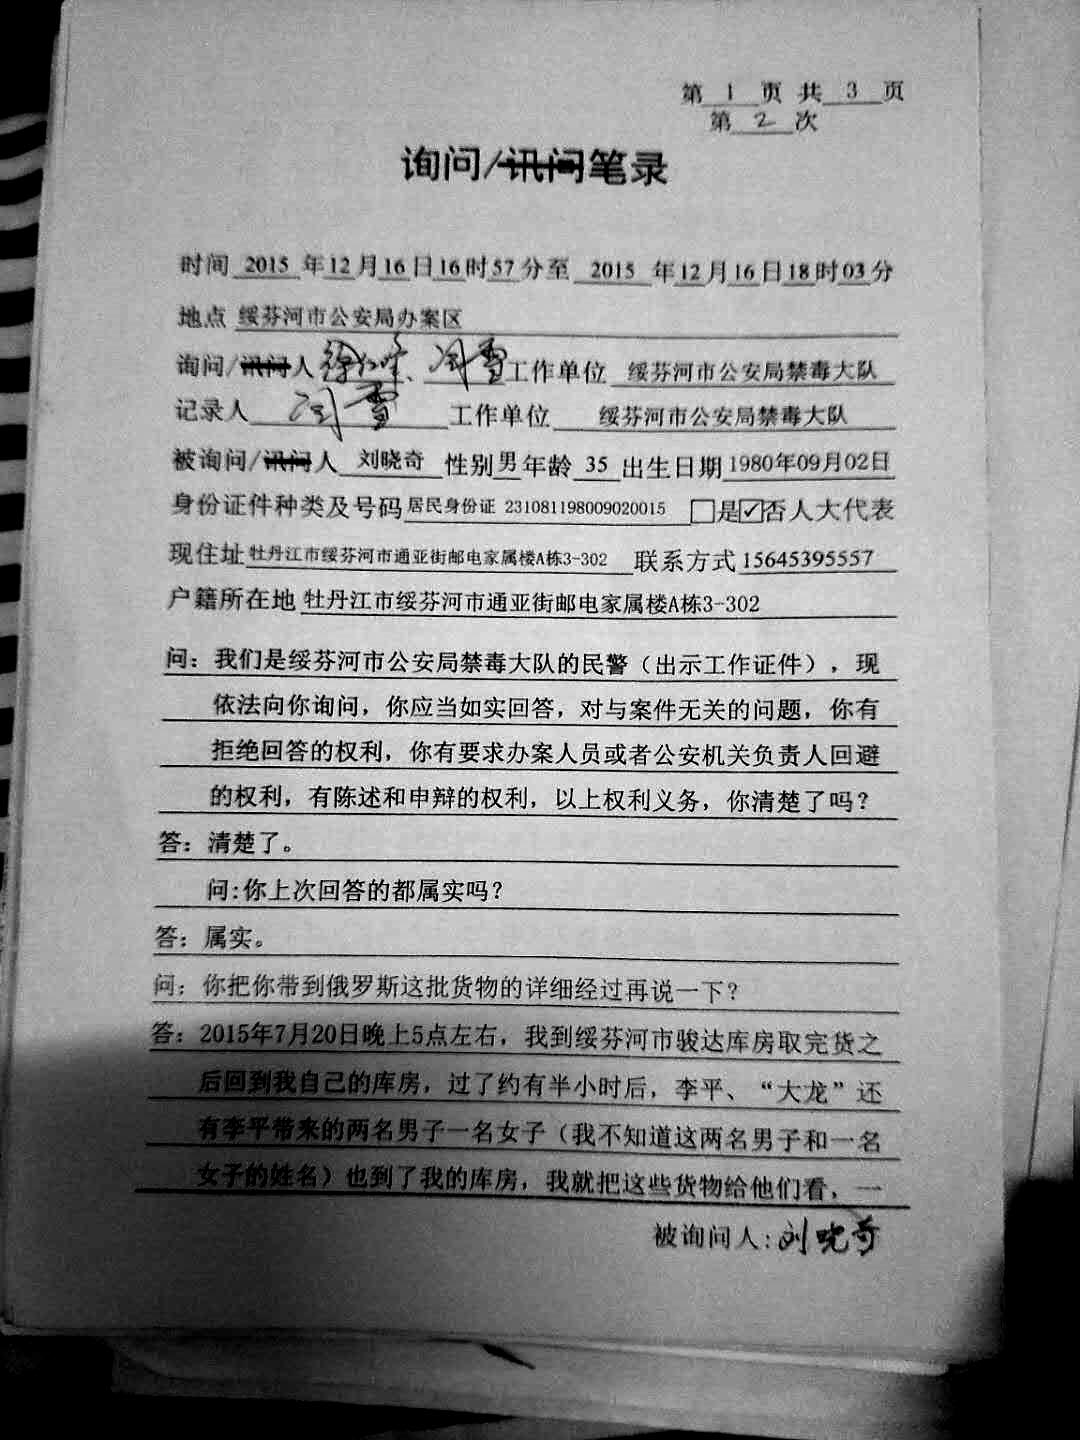 第 1 页 共 3 页
第 2 次
询问/讯问笔录
时间 2015 年12月16日16时57分至 2015 年12月16日18时03分
地点 绥芬河市公安局办案区
询问/讯问人 工作单位 绥芬河市公安局禁毒大队
记录人 闫雪 工作单位 绥芬河市公安局禁毒大队
被询问/讯问人 刘晓奇 性别男年龄 35 出生日期1980年09月02日
身份证件种类及号码居民身份证 231081198009020015 □是☑否人大代表
现住址牡丹江市绥芬河市通亚街邮电家属楼A栋3-302 联系方式15645395557
户籍所在地 牡丹江市绥芬河市通亚街邮电家属楼A栋3-302
问：我们是绥芬河市公安局禁毒大队的民警（出示工作证件），现
依法向你询问，你应当如实回答，对与案件无关的问题，你有
拒绝回答的权利，你有要求办案人员或者公安机关负责人回避
的权利，有陈述和申辩的权利，以上权利义务，你清楚了吗？
答：清楚了。
问:你上次回答的都属实吗？
答：属实。
问：你把你带到俄罗斯这批货物的详细经过再说一下？
答：2015年7月20日晚上5点左右，我到绥芬河市骏达库房取完货之
后回到我自己的库房，过了约有半小时后，李平、“大龙”还
有李平带来的两名男子一名女子（我不知道这两名男子和一名
女子的姓名）也到了我的库房，我就把这些货物给他们看，一
被询问人:刘晓奇